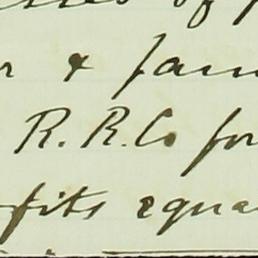 of
r & fam
R. R. Co for
fits equa